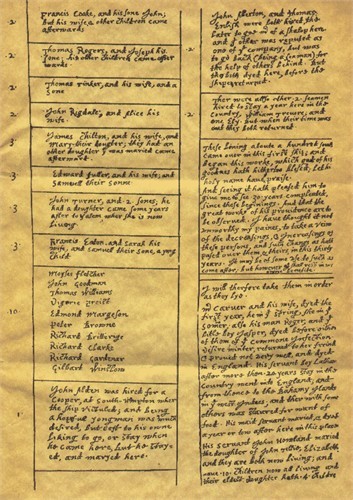 2
Francis Cooke, and his sone John;
but his wife & other children came
afterwards
2
Thomas Rogers, and Joseph his
sone; his other children came after
wards
2
Thomas Tinker, and his wife, and a
sone
2
John Rigdale, and Alice his
wife.
3
James Chilton, and his wife, and
Mary their doughter; they had an
other doughter y was maried came
afterward.
3
Edward fuller, and his wife; and
Samuell their sonne
3
John Turner, and 2. sones; he
had a doughter came some years
after to Salem, wher she is now
living.
3
Francis Eaton. and Sarah his
wife, and Samuell their sone, a yong
child
10
Moyses fletcher
John Goodman
Thomas Williams
Digerie Preist
Edmond Margeson
Peter Browne
Richard Britterige
Richard Clarke
Richard Gardenar
Gilbart Winslow
1
John Alden was hired for a
cooper, at South-Hampton wher
the ship victuled; and being
a hopfull yong man, was much
desired, but left to his owne
liking to go, or stay when
he came here, but he stay-
ed, and maryed here.
2
John Allerton, and Thomas
English were both hired, the
later to goe m of a shalop here.
and y other was reputed as
one of y company, but was
to go back (being a seaman) for
the help of others behind. But
they both dyed here, before the
shipe returned.
2
Ther were allso other 2. seamen
hired to stay a year here in the
country, William Trevore; and
one Ely. but when their time was
out they both returned
These being aboute a hundred sowls
came over in this first ship; and
began this worke, which god of his
goodnes hath hitherto blesed; Let his
holy name have praise.
And seeing it hath pleased him to
give me to see 30. years compleated,
since these beginings. And that the
great works of his providence are to
be observed. I have thought it not
unworthy my paines, to take a view
of the decreasings, & Increasings of
these persons, and such changs as hath
pased over them, & theirs, in this thirty
years. It may be of some use to such as
come after; but however
I will therfore take them in order
as they lye.
Mr Carver and his wife, dyed the
first year, he in y spring, she in y
somer; also his man Roger, and y
litle boy Jasper, dyed before either
of them of y commone Infection.
Desire minter, returned to her freind
& proved not very well, and dyed
in England. His servant boy Latham
after more then 20. years stay in the
country went into England; and
from thence to the Bahamy Ilands
in y west Indees; and ther with some
others was starved for want of
food. His maid servant maried, & dyed
a year or tow after here in this place
His servant John Howland maried
the doughter of John Tillie, Elizabeth,
and they are both now living; and
have .10. children now all living and
their eldest doughter hath .4. children